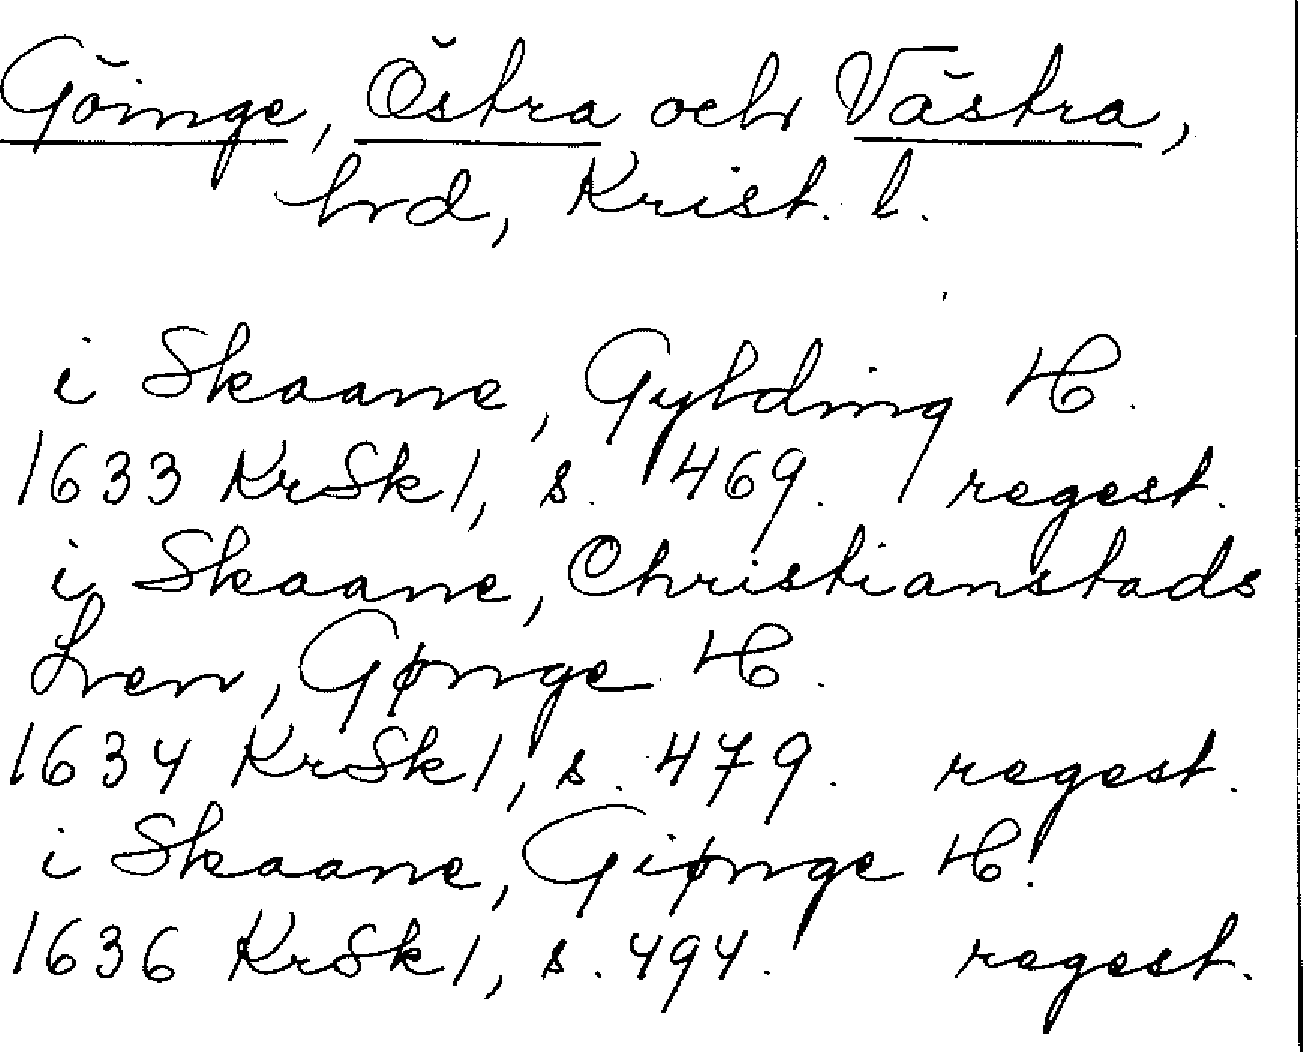 Göinge, Östra och Västra,
hrd, Krist. l.
i Skaane, Gylding H.
1633 KrSk 1, s. 469. regest.
i Skaane, Christianstads
Lren, Gønge H.
1634 KrSk 1, s. 479. regest.
i Skaane, Giønge H.
1636 KrSk 1, s. 494. regest.